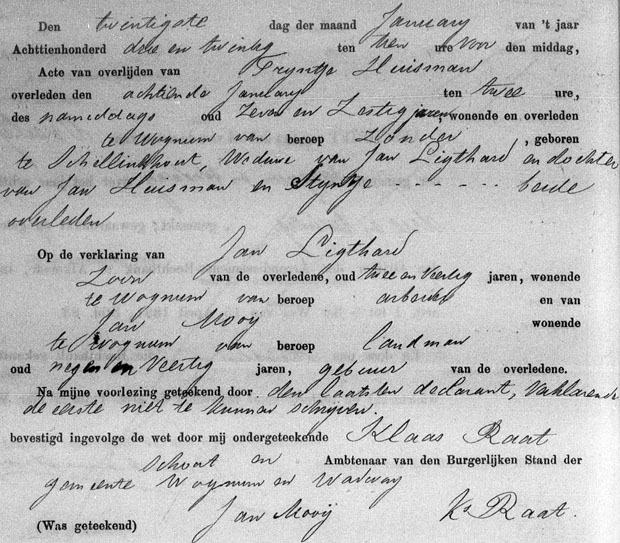 Den twintigste dag der maand January van 't jaar
Achttienhonderd drie en twintig ten tien ure voor den middag,
Acte van overlijden van Tryntje Huisman
overleden den achtiende January ten twee ure,
des nameddags oud Zeven en Zestig jaren, wonende en overleden
te Wognum van beroep zonder, geboren
te Schellinkhout, Weduwe van Jan Ligthard en dochter
van Jan Huisman en Styntje - - - - - beide
overleden
Op de verklaring van Jan Ligthard
Zoon van de overledene, oud twee en Veertig jaren, wonende
te Wognum van beroep arbeider en van
Jan Mooy wonende
te Wognum van beroep landman
oud negen en Veertig jaren, gebuur van de overledene.
Na mijne voorlezing geteekend door den laatsten declarant, Verklarende
de eerste niet te kunnen schrijven.
bevestigd ingevolge de wet door mij ondergeteekende Klaas Raat
Schout en Ambtenaar van den Burgerlijken Stand der
gemeente Wognum en Wadway
(Was geteekend) Jan Mooij Ks Raat.